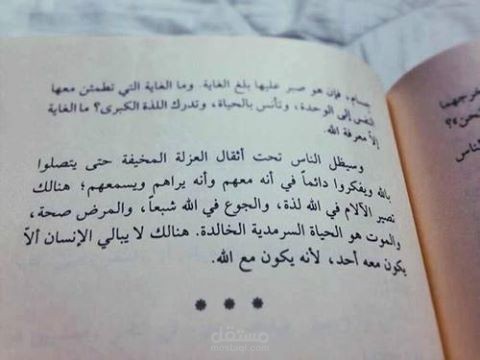 جسام، فإن هو صبر عليها بلغ الغاية. وما الغاية التي تطمئن معها
النفس إلى الوحدة، وتأنس بالحياة، وتدرك اللذة الكبرى؟ ما الغاية
إلاّ معرفة الله.
وسيظل الناس تحت أثقال العزلة المخيفة حتى يتصلوا
بالله ويفكروا دائماً في أنه معهم وأنه يراهم ويسمعهم؛ هنالك
تصير الآلام في الله لذة، والجوع في الله شبعاً، والمرض صحة،
والموت هو الحياة السرمدية الخالدة. هنالك لا يبالي الإنسان ألاّ
يكون معه أحد، لأنه يكون مع الله.
* * *
خرجهما
نحن»؟
الناس
مستقل
mostaql.com